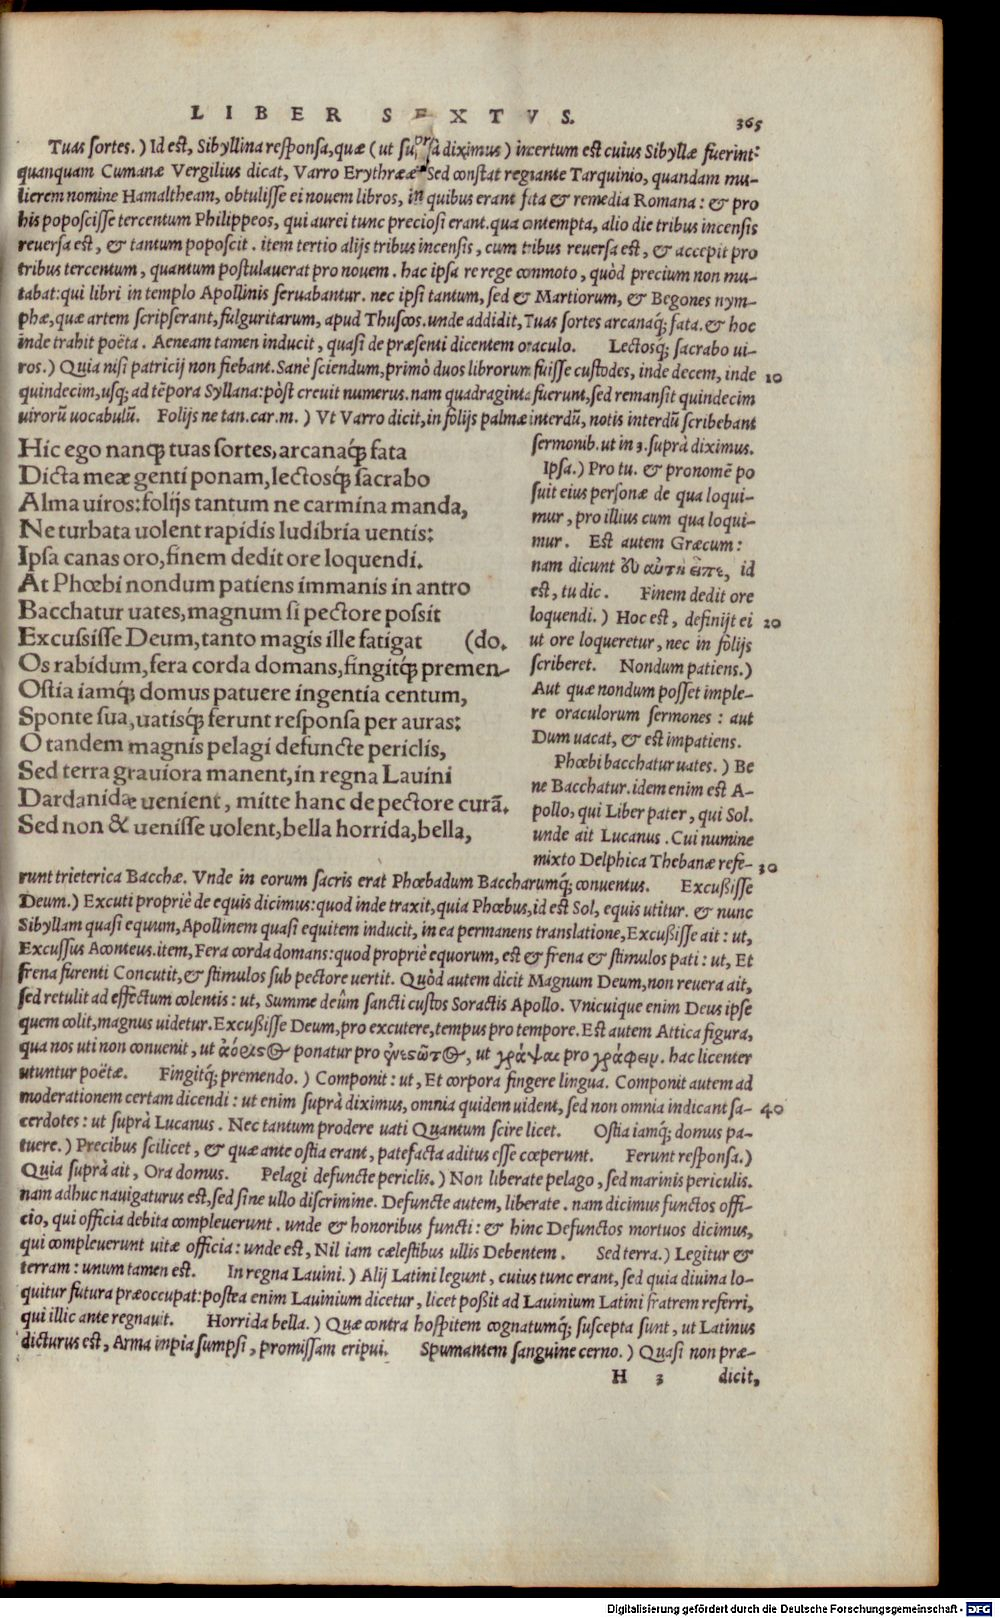 LIBER SEXTVS.
365
Tuas sortes.) Id est, Sibyllina responsa, quæ (ut suprà diximus) incertum est cuius Sibyllæ fuerint:
quanquam Cumanæ Vergilius dicat, Varro Erythrææ. Sed constat regnante Tarquinio, quandam mu-
lierem nomine Hamaltheam, obtulisse ei nouem libros, in quibus erant fata & remedia Romana: & pro
his poposcisse tercentum Philippeos, qui aurei tunc preciosi erant. qua contempta, alio die tribus incensis
reuersa est, & tantum poposcit. item tertio alijs tribus incensis, cum tribus reuersa est, & accepit pro
tribus tercentum, quantum postulauerat pro nouem. hac ipsa re rege commoto, quòd precium non mu-
tabat: qui libri in templo Apollinis seruabantur. nec ipsi tantum, sed & Martiorum, & Begones nym-
phæ, quæ artem scripserant, fulguritarum, apud Thuscos. unde addidit, Tuas sortes arcanaq́; fata. & hoc
inde trahit poëta. Aeneam tamen inducit, quasi de præsenti dicentem oraculo. Lectosq́; sacrabo ui-
ros.) Quia nisi patricij non fiebant. Sanè sciendum, primò duos librorum fuisse custodes, inde decem, inde 10
quindecim, usq́; ad tẽpora Syllana: pòst creuit numerus. nam quadraginta fuerunt, sed remansit quindecim
uirorũ uocabulũ. Folijs ne tan. car. m.) Vt Varro dicit, in folijs palmæ interdũ, notis interdũ scribebant
Hic ego nanq́ tuas sortes, arcanaq́ fata
Dicta meæ genti ponam, lectosq́ sacrabo
Alma uiros: folijs tantum ne carmina manda,
Ne turbata uolent rapidis ludibria uentis:
Ipsa canas oro, finem dedit ore loquendi.
At Phœbi nondum patiens immanis in antro
Bacchatur uates, magnum si pectore possit
Excussisse Deum, tanto magis ille fatigat (do.
Os rabidum, fera corda domans, fingitq́ premen-
Ostia iamq́ domus patuere ingentia centum,
Sponte sua, uatisq́ ferunt responsa per auras:
O tandem magnis pelagi defuncte periclis,
Sed terra grauiora manent, in regna Lauini
Dardanidæ uenient, mitte hanc de pectore curã.
Sed non & uenisse uolent, bella horrida, bella,
sermonib. ut in 3. suprà diximus.
Ipsa.) Pro tu. & pronomẽ po
suit eius personæ de qua loqui-
mur, pro illius cum qua loqui-
mur. Est autem Græcum:
nam dicunt σὺ αὐτὴ εἰπὲ, id
est, tu dic. Finem dedit ore
loquendi.) Hoc est, definijt ei 20
ut ore loqueretur, nec in folijs
scriberet. Nondum patiens.)
Aut quæ nondum posset imple-
re oraculorum sermones: aut
Dum uacat, & est impatiens.
Phœbi bacchatur uates.) Be
ne Bacchatur. idem enim est A-
pollo, qui Liber pater, qui Sol.
unde ait Lucanus. Cui numine
mixto Delphica Thebanæ refe- 30
runt trieterica Bacchæ. Vnde in eorum sacris erat Phœbadum Baccharumq́; conuentus. Excußisse
Deum.) Excuti propriè de equis dicimus: quod inde traxit, quia Phœbus, id est Sol, equis utitur. & nunc
Sibyllam quasi equum, Apollinem quasi equitem inducit, in ea permanens translatione, Excußisse ait: ut,
Excussus Aconteus. item, Fera corda domans: quod propriè equorum, est & frena & stimulos pati: ut, Et
frena furenti Concutit, & stimulos sub pectore uertit. Quòd autem dicit Magnum Deum, non reuera ait,
sed retulit ad effectum colentis: ut, Summe deûm sancti custos Soractis Apollo. Vnicuique enim Deus ipse
quem colit, magnus uidetur. Excußisse Deum, pro excutere, tempus pro tempore. Est autem Attica figura,
qua nos uti non conuenit, ut ἀόριστος ponatur pro ἐνεστῶτος, ut γράψαι pro γράφειν. hac licenter
utuntur poëtæ. Fingitq́; premendo.) Componit: ut, Et corpora fingere lingua. Componit autem ad
moderationem certam dicendi: ut enim suprà diximus, omnia quidem uident, sed non omnia indicant sa- 40
cerdotes: ut suprà Lucanus. Nec tantum prodere uati Quantum scire licet. Ostia iamq́; domus pa-
tuere.) Precibus scilicet, & quæ ante ostia erant, patefacta aditus esse cœperunt. Ferunt responsa.)
Quia suprà ait, Ora domus. Pelagi defuncte periclis.) Non liberate pelago, sed marinis periculis.
nam adhuc nauigaturus est, sed sine ullo discrimine. Defuncte autem, liberate. nam dicimus functos offi-
cio, qui officia debita compleuerunt. unde & honoribus functi: & hinc Defunctos mortuos dicimus,
qui compleuerunt uitæ officia: unde est, Nil iam cælestibus ullis Debentem. Sed terra.) Legitur &
terram: unum tamen est. In regna Lauini.) Alij Latini legunt, cuius tunc erant, sed quia diuina lo-
quitur futura præoccupat: postea enim Lauinium dicetur, licet poßit ad Lauinium Latini fratrem referri,
qui illic ante regnauit. Horrida bella.) Quæ contra hospitem cognatumq́; suscepta sunt, ut Latinus
dicturus est, Arma impia sumpsi, promissam eripui. Spumantem sanguine cerno.) Quasi non præ-
H 3 dicit,
Digitalisierung gefördert durch die Deutsche Forschungsgemeinschaft - DFG